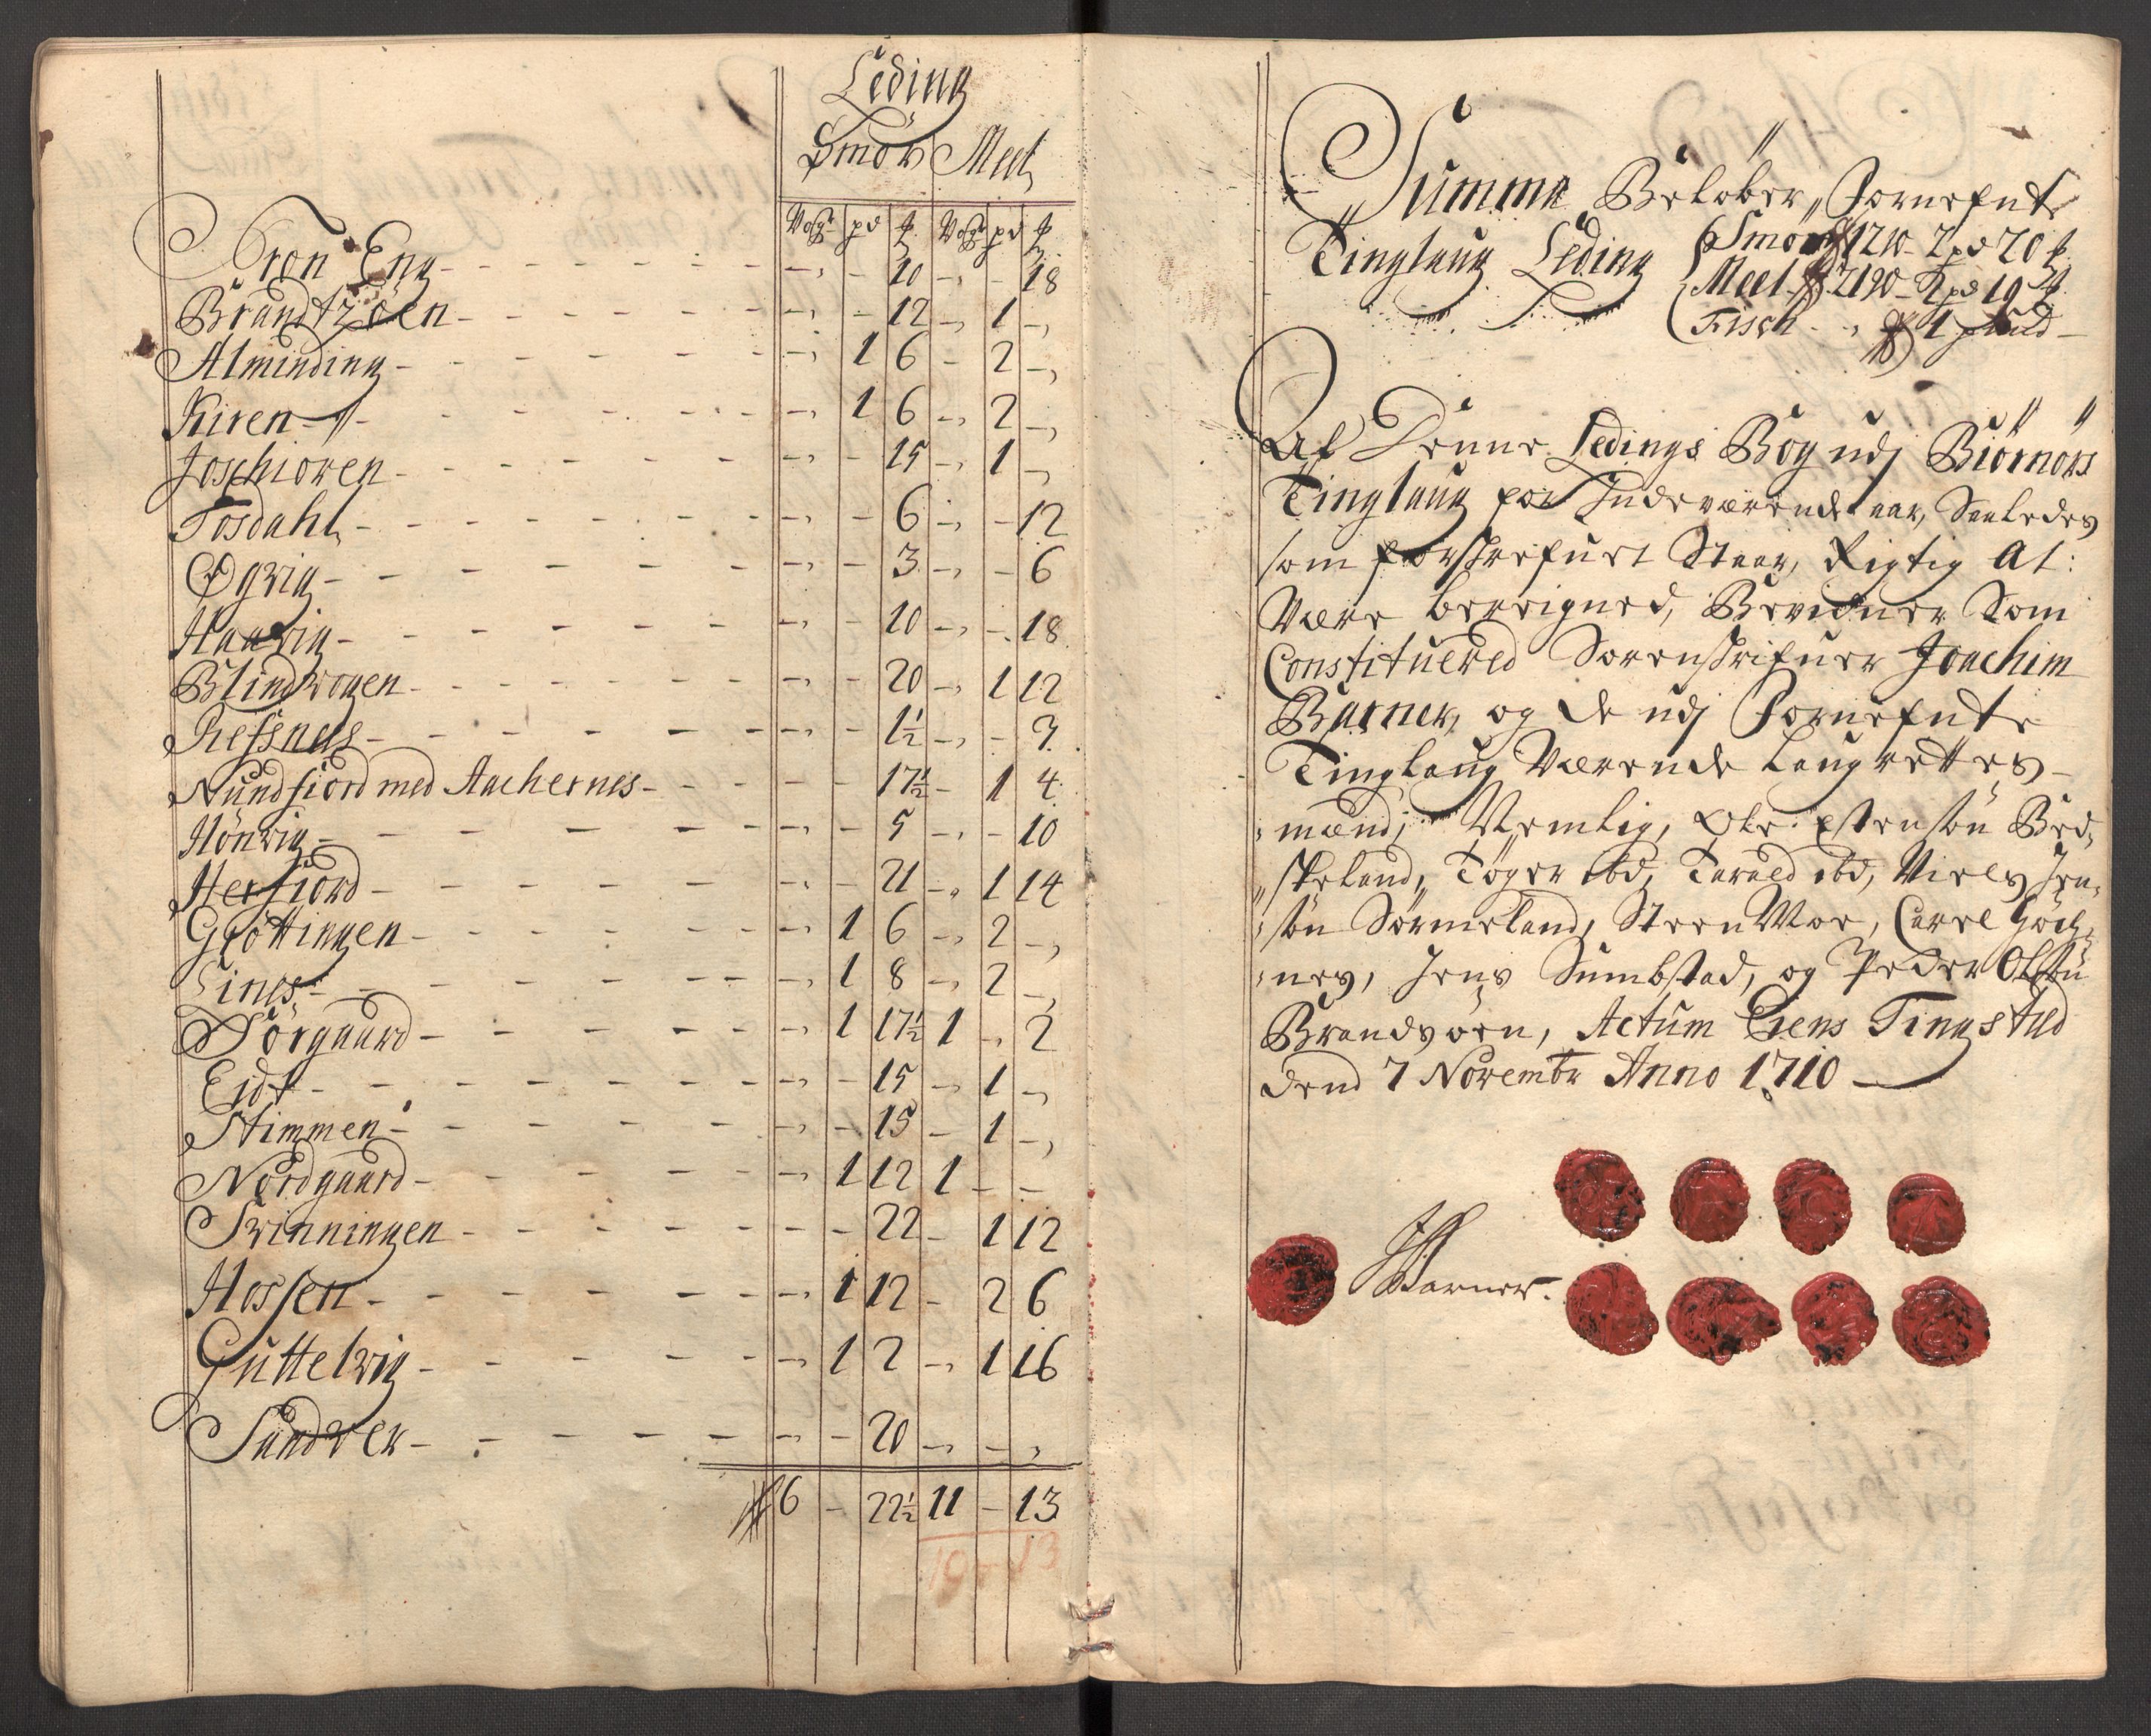 Leding
Smör Meel
Wog pd ℔ Wog pd ℔
Tron Eng - - 10 - - 18
Brandtzöen - - 12 - 1 -
Alminding - 1 6 - 2 -
Kiren - 1 6 - 2 -
Joschioren - - 15 - 1 -
Tosdahl - - 6 - - 12
Øgvig - - 3 - - 6
Haavig - - 10 - - 18
Blindvogen - - 20 - 1 12
Refsnes - - 1½ - - 3
Nundfiord med Aachernes - - 17½ - 1 4
Hönvig - - 5 - - 10
Herfiord - - 21 - 1 14
Gröttingen - 1 6 - 2 -
Eines - 1 8 - 2 -
Sörgaard - 1 17½ 1 - 2
Eidt - - 15 - 1 -
Stimmen - - 15 - 1 -
Nordgaard - 1 12 1 - -
Svinningen - - 22 - 1 12
Hossen - 1 12 - 2 6
Guttelvig - 1 2 - 1 16
Sundver - - 20 - - -
6 - 22½ 11 - 13
19 - 13
Summa Belöber Fornefnte
Tinglaug Leding Smör 12 W - 2 pd 20 ℔
Meel 19 - 2 pd 19 ℔
Fisch - 1 pund
At Denne Ledings Bog udj Biörnörs
Tinglaug for Indeværende aar, Saaledes
som forskrefuet Staar, Rigtig at
Være beregned, Bevidner Som
Constituered Sorenskrifuer Joachim
Barner, og de udj Fornefnte
Tinglaug Værende Laugrettes
mænd, Nemlig, Ole Estensön Bes
skeland, Töger ibd, Tarald ibd, Niels Jen
sön Sörmeland, Steen Moe, Carel
nes, Jens Sumbstad, og Peder Olsön
Brandsören, Actum Eiens Tingsted
dend 7 Novembr Anno 1710
JBarner.